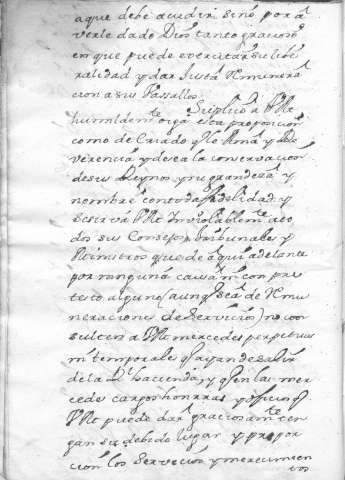 a que debe acudir sino por a
verle dado Dios tanto gracioso
en que puede exercitar su libe
ralidad y dar justa Remunera
cion a sus Vassallos.
Suplico a V Mg
humildemte oiga esta proposicion
como de Criado qe le Ama y Re
verencia y desea la conservacion
de sus Reynos, y su grandeza y
nombre con toda fidelidad y
se sirva V Mg Inviolablemte a to
dos sus Consejos, tribunales y
Ministros que de aqui adelante
por ninguna causa ni con pre
texto alguno (aunq sea de Remu
neraciones de servicios) no con
sulten a V Mg mercedes perpetuas
ni temporales q ayan de salir
de la Rl hacienda, y q en las mer
cedes cargos honrras y oficios q
V Mg puede dar graciosamte ten
gan su debido lugar y propor
cion los servicios y merecimien
tos